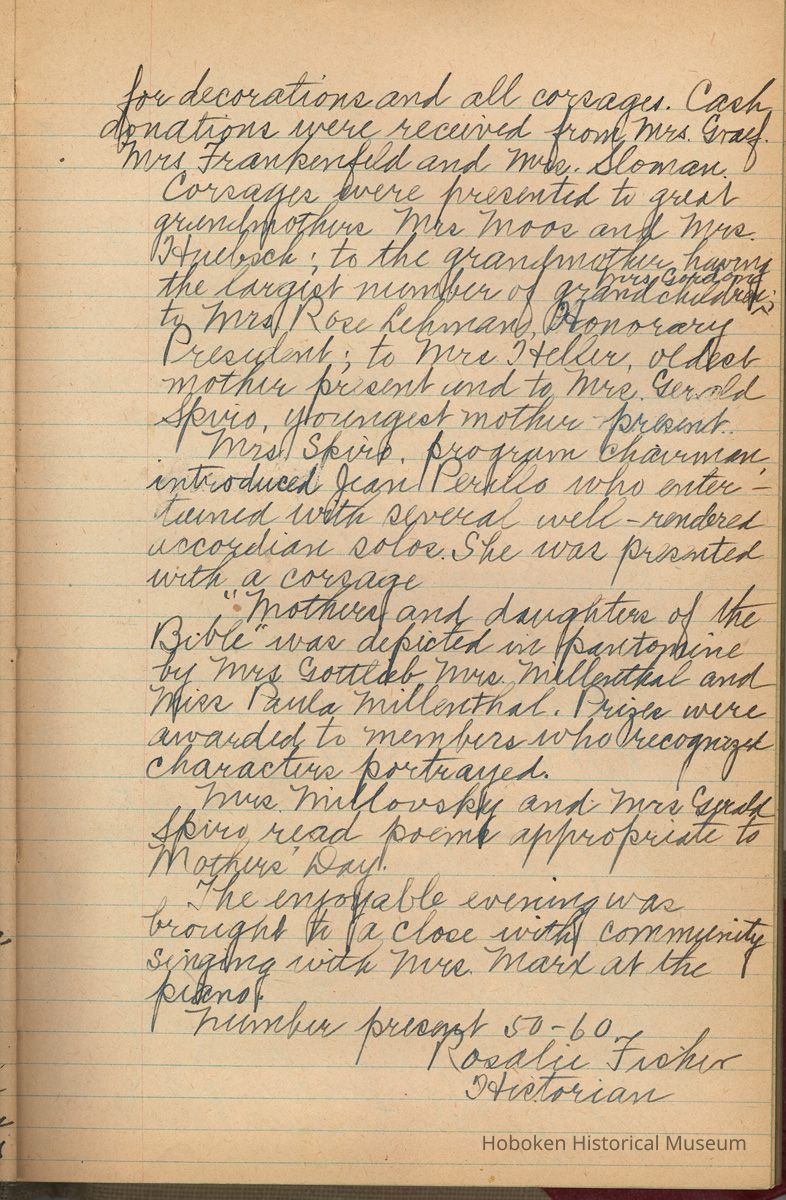 for decorations and all corsages. Cash
donations were received from Mrs. Graf.
Mrs Frankenfeld and Mrs. Sloman.
Corsages were presented to great
grandmothers Mrs Moos and Mrs.
Huebsch; to the grandmother having
Mrs. Gordon
the largest number of grandchildren;
to Mrs Rose Lehman, Honorary
President; to Mrs Heller, oldest
mother present and to Mrs. Gerald
Spiro, youngest mother present.
Mrs. Spiro, program chairman,
introduced Jean Perillo who enter-
tained with several well-rendered
accordian solos. She was presented
with a corsage
"Mothers and daughters of the
Bible" was depicted in pantomine
by Mrs Gottlieb Mrs. Millenthal and
Miss Paula Millenthal. Prizes were
awarded to members who recognized
characters portrayed.
Mrs. Millovsky and Mrs Gerald
Spiro read poems appropriate to
Mothers' Day.
The enjoyable evening was
brought to a close with community
singing with Mrs. Marx at the
piano.
Number present 50-60
Rosalie Fisher
Historian
Hoboken Historical Museum